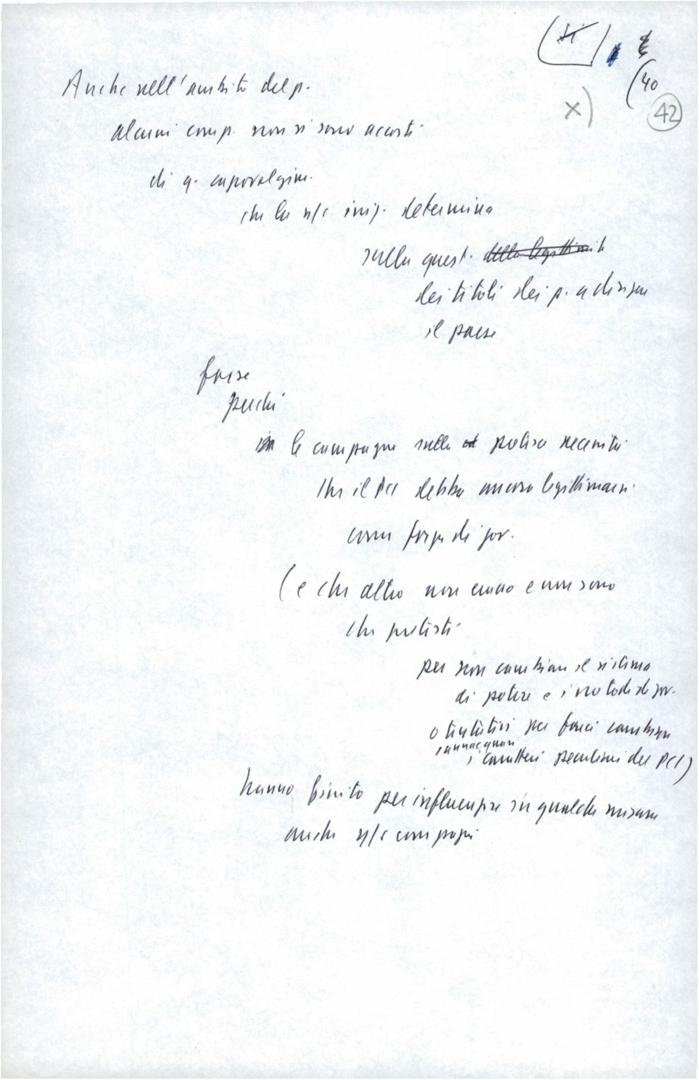 (40
x) 42
Anche nell'ambito del p.
alcuni comp. non si sono accorti
di q. capovolgim.
che la n/s iniz. determina
sulla quest.
dei titoli dei p. a dirigere
il paese
forse
perché
le campagne sulla pretesa necessità
che il PCI debba ancora legittimarsi
come forza di gov.
(e che altro non erano e non sono
che pretesti
per non cambiare il sistema
di potere e i metodi di gov.
o tentativi per farci cambiare
annacquare
i caratteri peculiari del PCI)
hanno finito per influenzare in qualche misura
anche n/s compagni